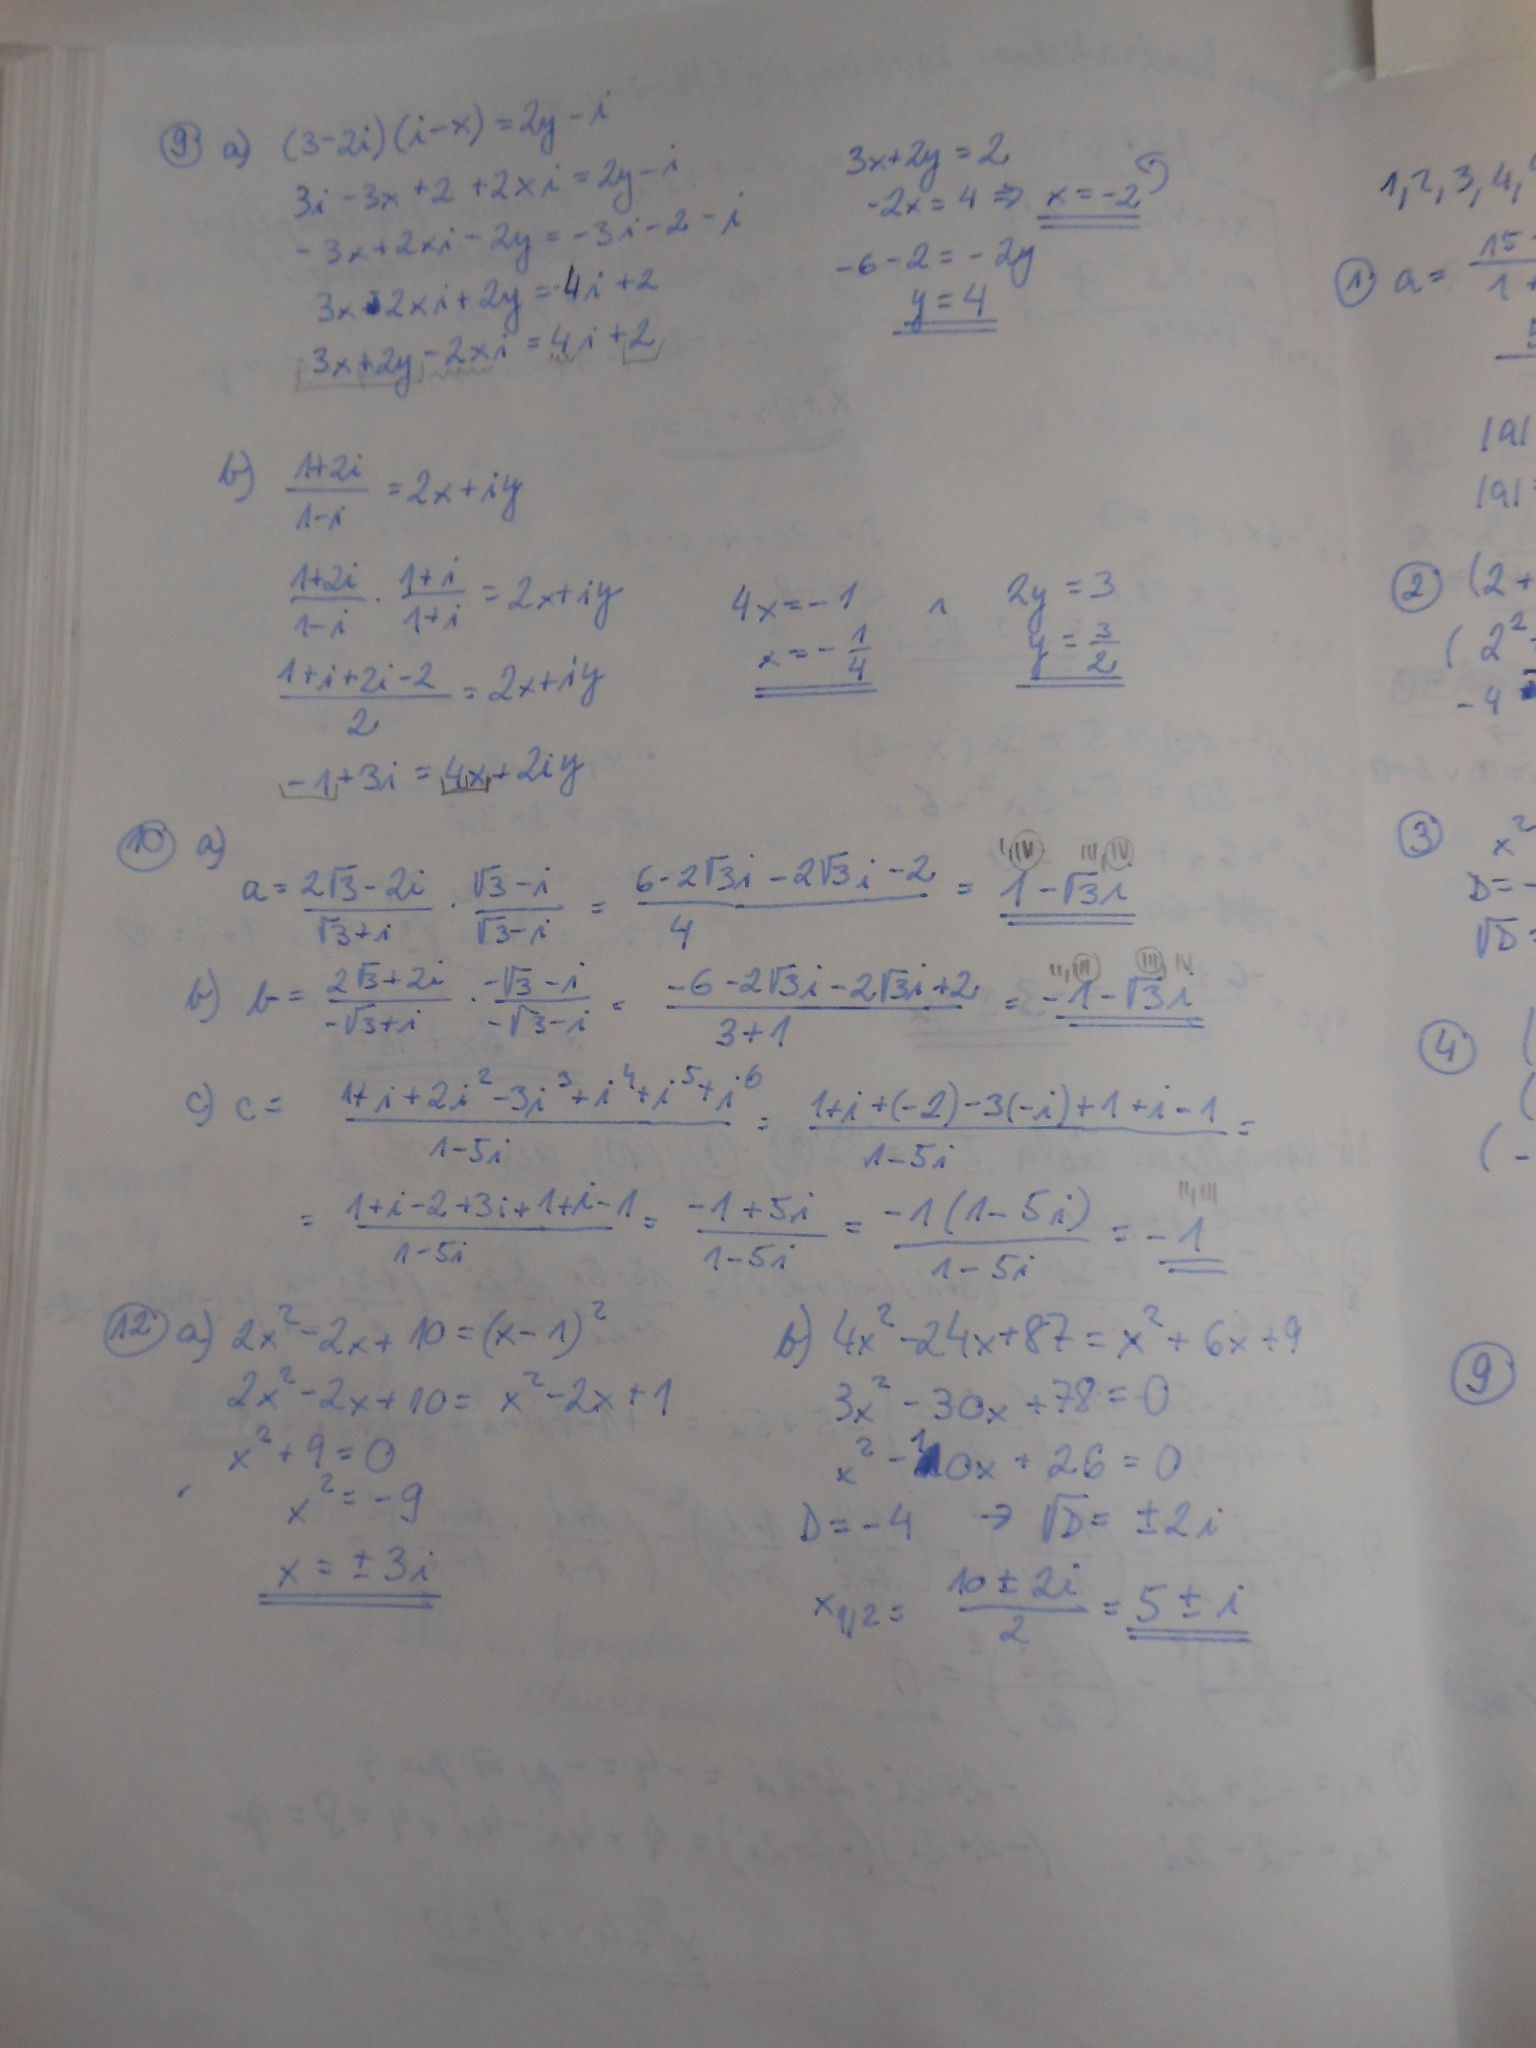 9) a) (3-2i)(i-x)=2y-i
3i-3x+2+2xi=2y-i
-3x+2xi-2y=-3i-2-i
3x-2xi+2y=4i+2
3x+2y-2xi=4i+2
3x+2y=2
-2x=4 ⇒ x=-2
-6-2=-2y
y=4
b) \frac{1+2i}{1-i}=2x+iy
\frac{1+2i}{1-i}·\frac{1+i}{1+i}=2x+iy
\frac{1+i+2i-2}{2}=2x+iy
-1+3i=4x+2iy
4x=-1 ∧ 2y=3
x=-\frac{1}{4} y=\frac{3}{2}
10) a)
I, IV III, IV
a=\frac{2√3-2i}{√3+i}·\frac{√3-i}{√3-i}=\frac{6-2√3i-2√3i-2}{4}=1-√3i
II, III III, IV
b) b=\frac{2√3+2i}{-√3+i}·\frac{-√3-i}{-√3-i}=\frac{-6-2√3i-2√3i+2}{3+1}=-1-√3i
c) c=\frac{1+i+2i²-3i³+i⁴+i⁵+i⁶}{1-5i}=\frac{1+i+(-2)-3(-i)+1+i-1}{1-5i}=
II, III
=\frac{1+i-2+3i+1+i-1}{1-5i}=\frac{-1+5i}{1-5i}=\frac{-1(1-5i)}{1-5i}=-1
12) a) 2x²-2x+10=(x-1)²
2x²-2x+10=x²-2x+1
x²+9=0
x²=-9
x=±3i
b) 4x²-24x+87=x²+6x+9
3x²-30x+78=0
x²-10x+26=0
D=-4 → √D=±2i
x_{1,2}=\frac{10±2i}{2}=5±i
1,2,3,4,
1) a=
|a|
|a|=
2) (2+
(2²
-4
3) x²
D=-
√D=
4) (
(
(-
9)